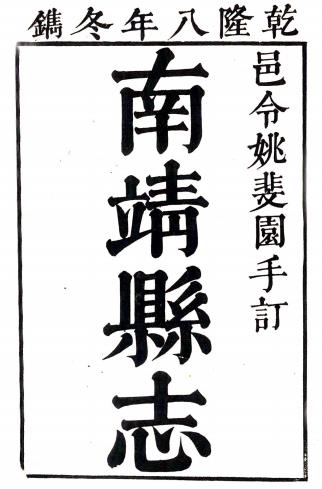 乾隆八年冬鐫
邑令姚斐園手訂
南靖縣志